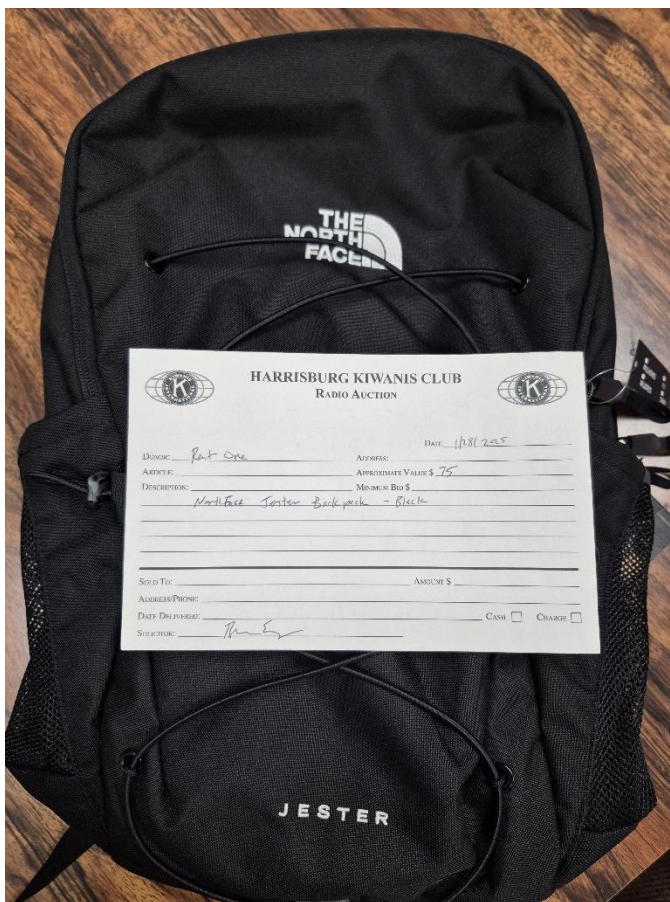 THE
NORTH
FACE
HARRISBURG KIWANIS CLUB
RADIO AUCTION
DATE 1/28/2025
DONOR: Rent One ADDRESS:
ARTICLE: APPROXIMATE VALUE $ 75
DESCRIPTION: MINIMUM BID $
NorthFace Jester Backpack - Black
SOLD TO: AMOUNT $
ADDRESS/PHONE:
DATE DELIVERED: CASH CHARGE
SOLICITOR:
JESTER